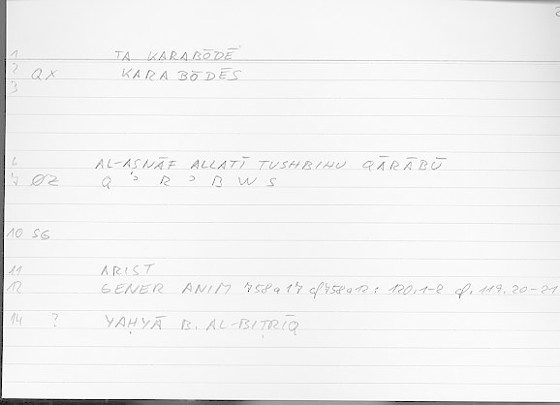 1 TA KARABŌDĒ
2 QX KARABŌDĒS
3
6 AL-AṢNĀF ALLATĪ TUSHBIHU QĀRĀBŪ
7 ØZ Q ʾ R ʾ B W S
10 SG
11 ARIST
12 GENER ANIM 758a17 cf 758a12 : 120.1-2 cf. 119.20-21
14 ? YAḤYĀ B. AL-BIṬRĪQ